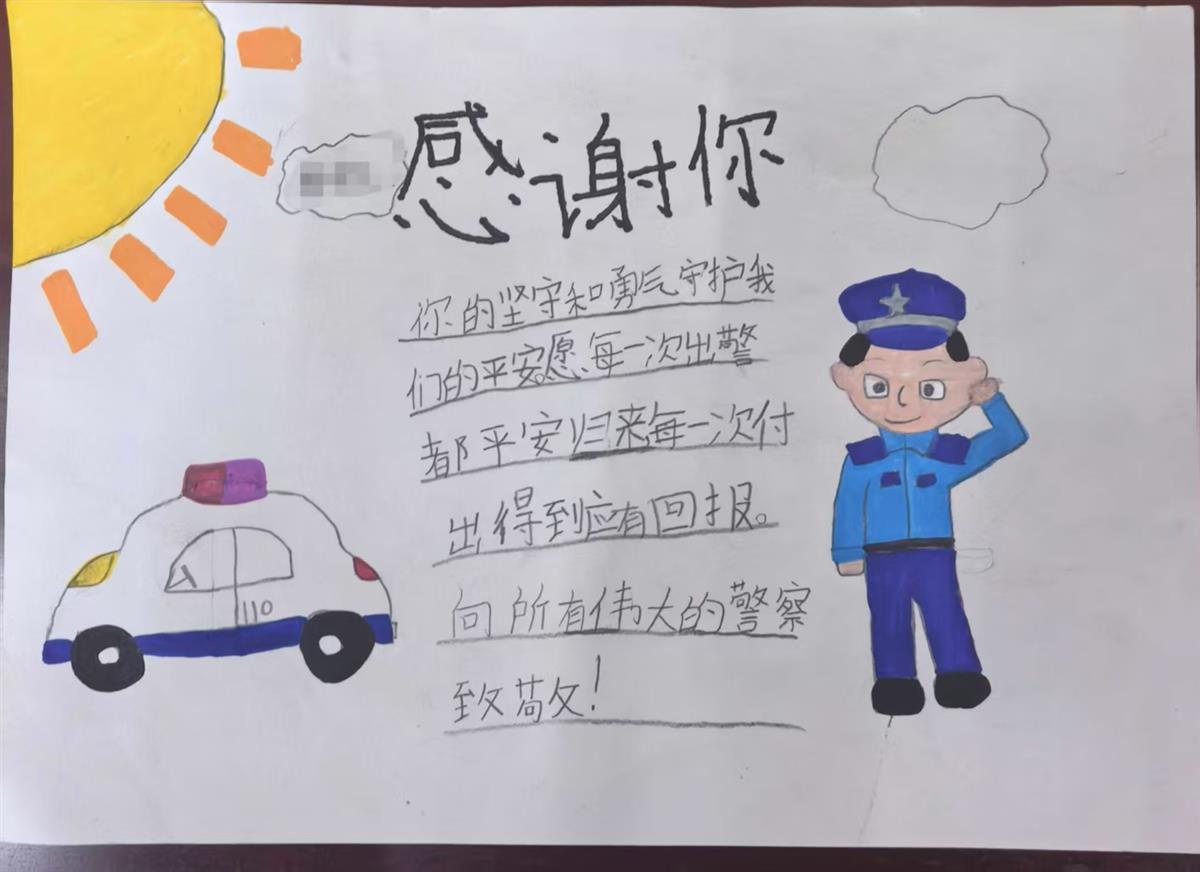 感谢你
你的坚守和勇气守护我
们的平安。愿每一次出警
都平安归来每一次付
出得到应有回报。
向所有伟大的警察
致敬！
110